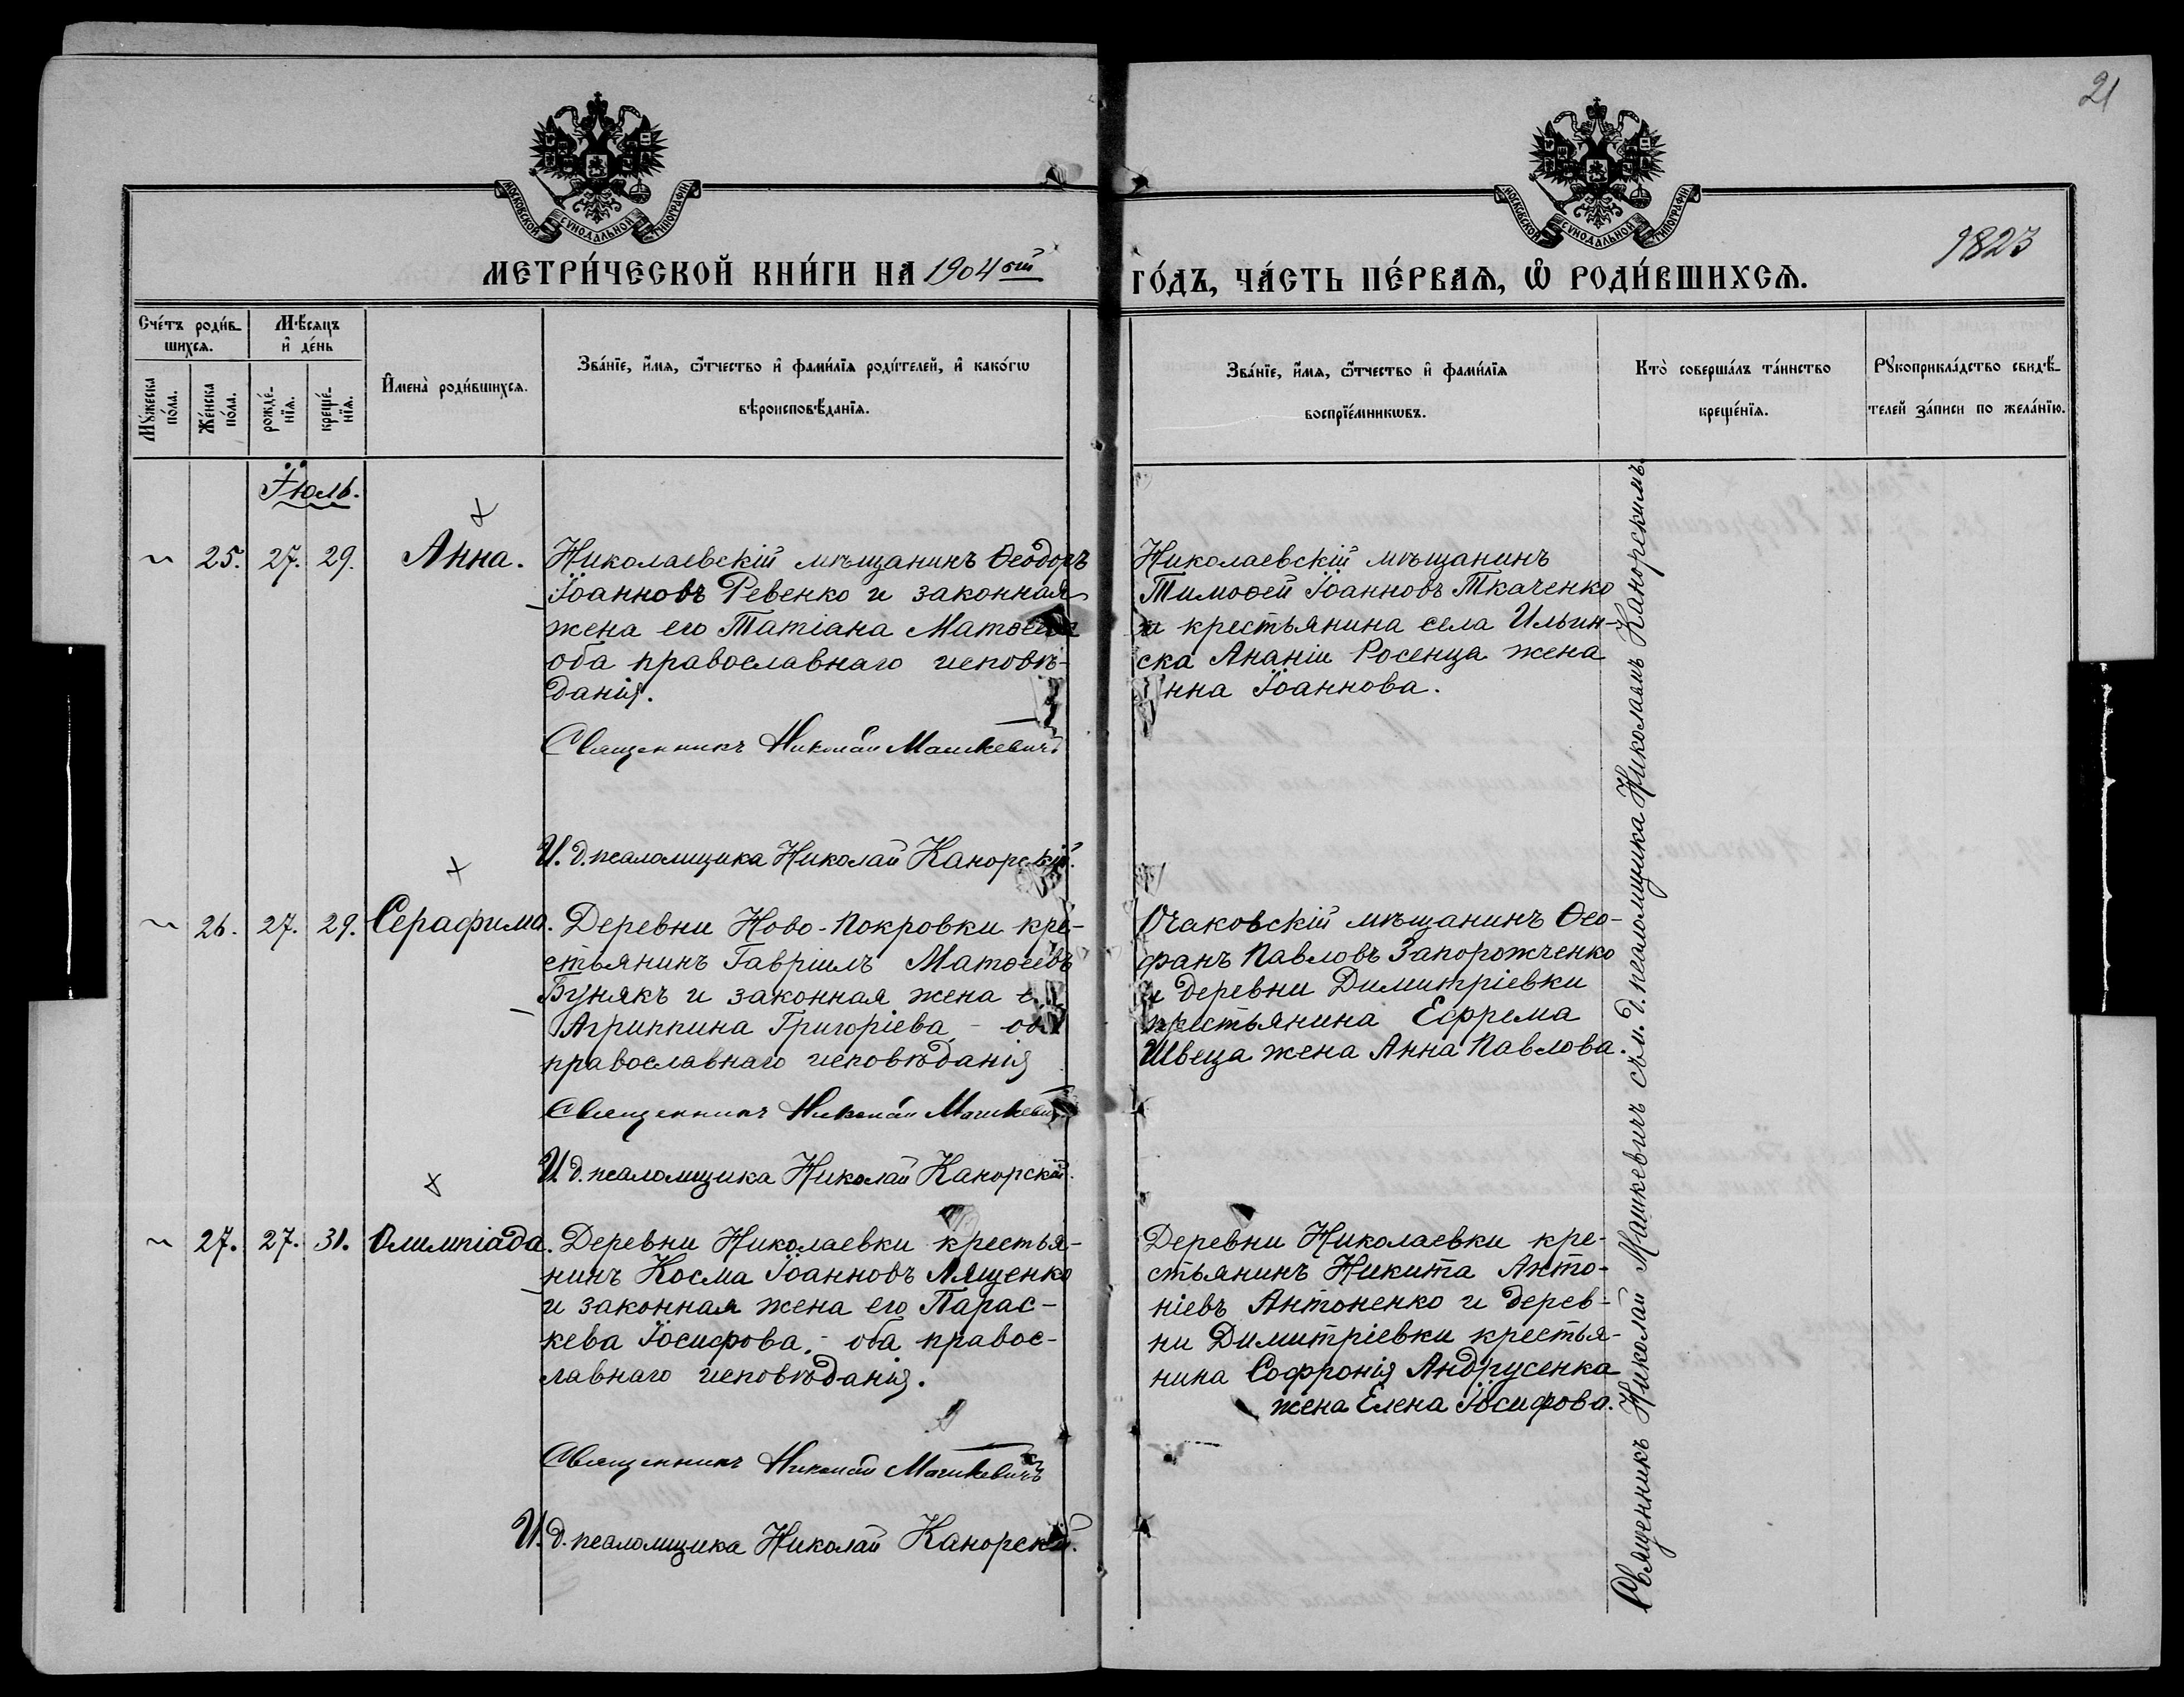 21
МОСКОВСКОЙ СУНОДАЛЬНОЙ ТИПОГРАФІИ
МОСКОВСКОЙ СУНОДАЛЬНОЙ ТИПОГРАФІИ
1823
МЕТРИ́ЧЕСКОЙ КНИ́ГИ НА 1904ый
ГО́ДЪ, ЧА́СТЬ ПЕ́РВАѦ, Ѽ РОДИ́ВШИХСѦ.
Сче́тъ роди́в-
шихсѧ.
Мѣ́сѧцъ
и҆ де́нь
Мꙋ́жеска
по́ла.
Же́нска
по́ла.
рожде́-
нїѧ.
креще́-
нїѧ.
И҆мена̀ роди́вшихсѧ.
Зва́нїе, и҆́мѧ, ѻ҆́тчество и҆ фами́лїѧ роди́телей, и҆ како́гѡ
вѣроисповѣ́данїѧ.
Зва́нїе, и҆́мѧ, ѻ҆́тчество и҆ фами́лїѧ
воспрїе́мникѡвъ.
Кто̀ соверша́лъ та́инство
креще́нїѧ.
Рꙋкоприкла́дство свидѣ́-
телей за́писи по жела́нїю.
Іюль.
25. 27. 29. Анна.
Николаевскій мѣщанинъ Ѳеодоръ
Іоанновъ Ревенко и законная
жена его Татіана Матѳеева
оба православнаго исповѣ-
данія.
Священникъ Николай Машкевичъ
И. д. псаломщика Николай Канорскій.
Николаевскій мѣщанинъ
Тимоѳей Іоанновъ Ткаченко
и крестьянина села Ильин-
ска Ананіи Росенца жена
нна Іоаннова.
26. 27. 29. Серафима.
Деревни Ново-Покровки кре-
стьянинъ Гавріилъ Матѳеевъ
Бунякъ и законная жена е
Агриппина Григоріева - об
православнаго исповѣданія
Священникъ Николай Машкевичъ
И. д. псаломщика Николай Канорскій.
Очаковскій мѣщанинъ Ѳео-
фанъ Павловъ Запорожченко
и деревни Димитріевки
крестьянина Ефрема
Швеца жена Анна Павлова.
27. 27. 31. Олимпіада.
Деревни Николаевки крестья-
нинъ Косма Іоанновъ Лященко
и законная жена его Парас-
кева Іосифова, - оба правос-
лавнаго исповѣданія.
Священникъ Николай Машкевичъ
И. д. псаломщика Николай Канорскій.
Деревни Николаевки кре-
стьянинъ Никита Анто-
ніевъ Антоненко и дерев-
ни Димитріевки крестья-
нина Софронія Андрусенка
жена Елена Іосифова.
Священникъ Николай Машкевичъ съ и. д. псаломщика Николаемъ Канорскимъ.